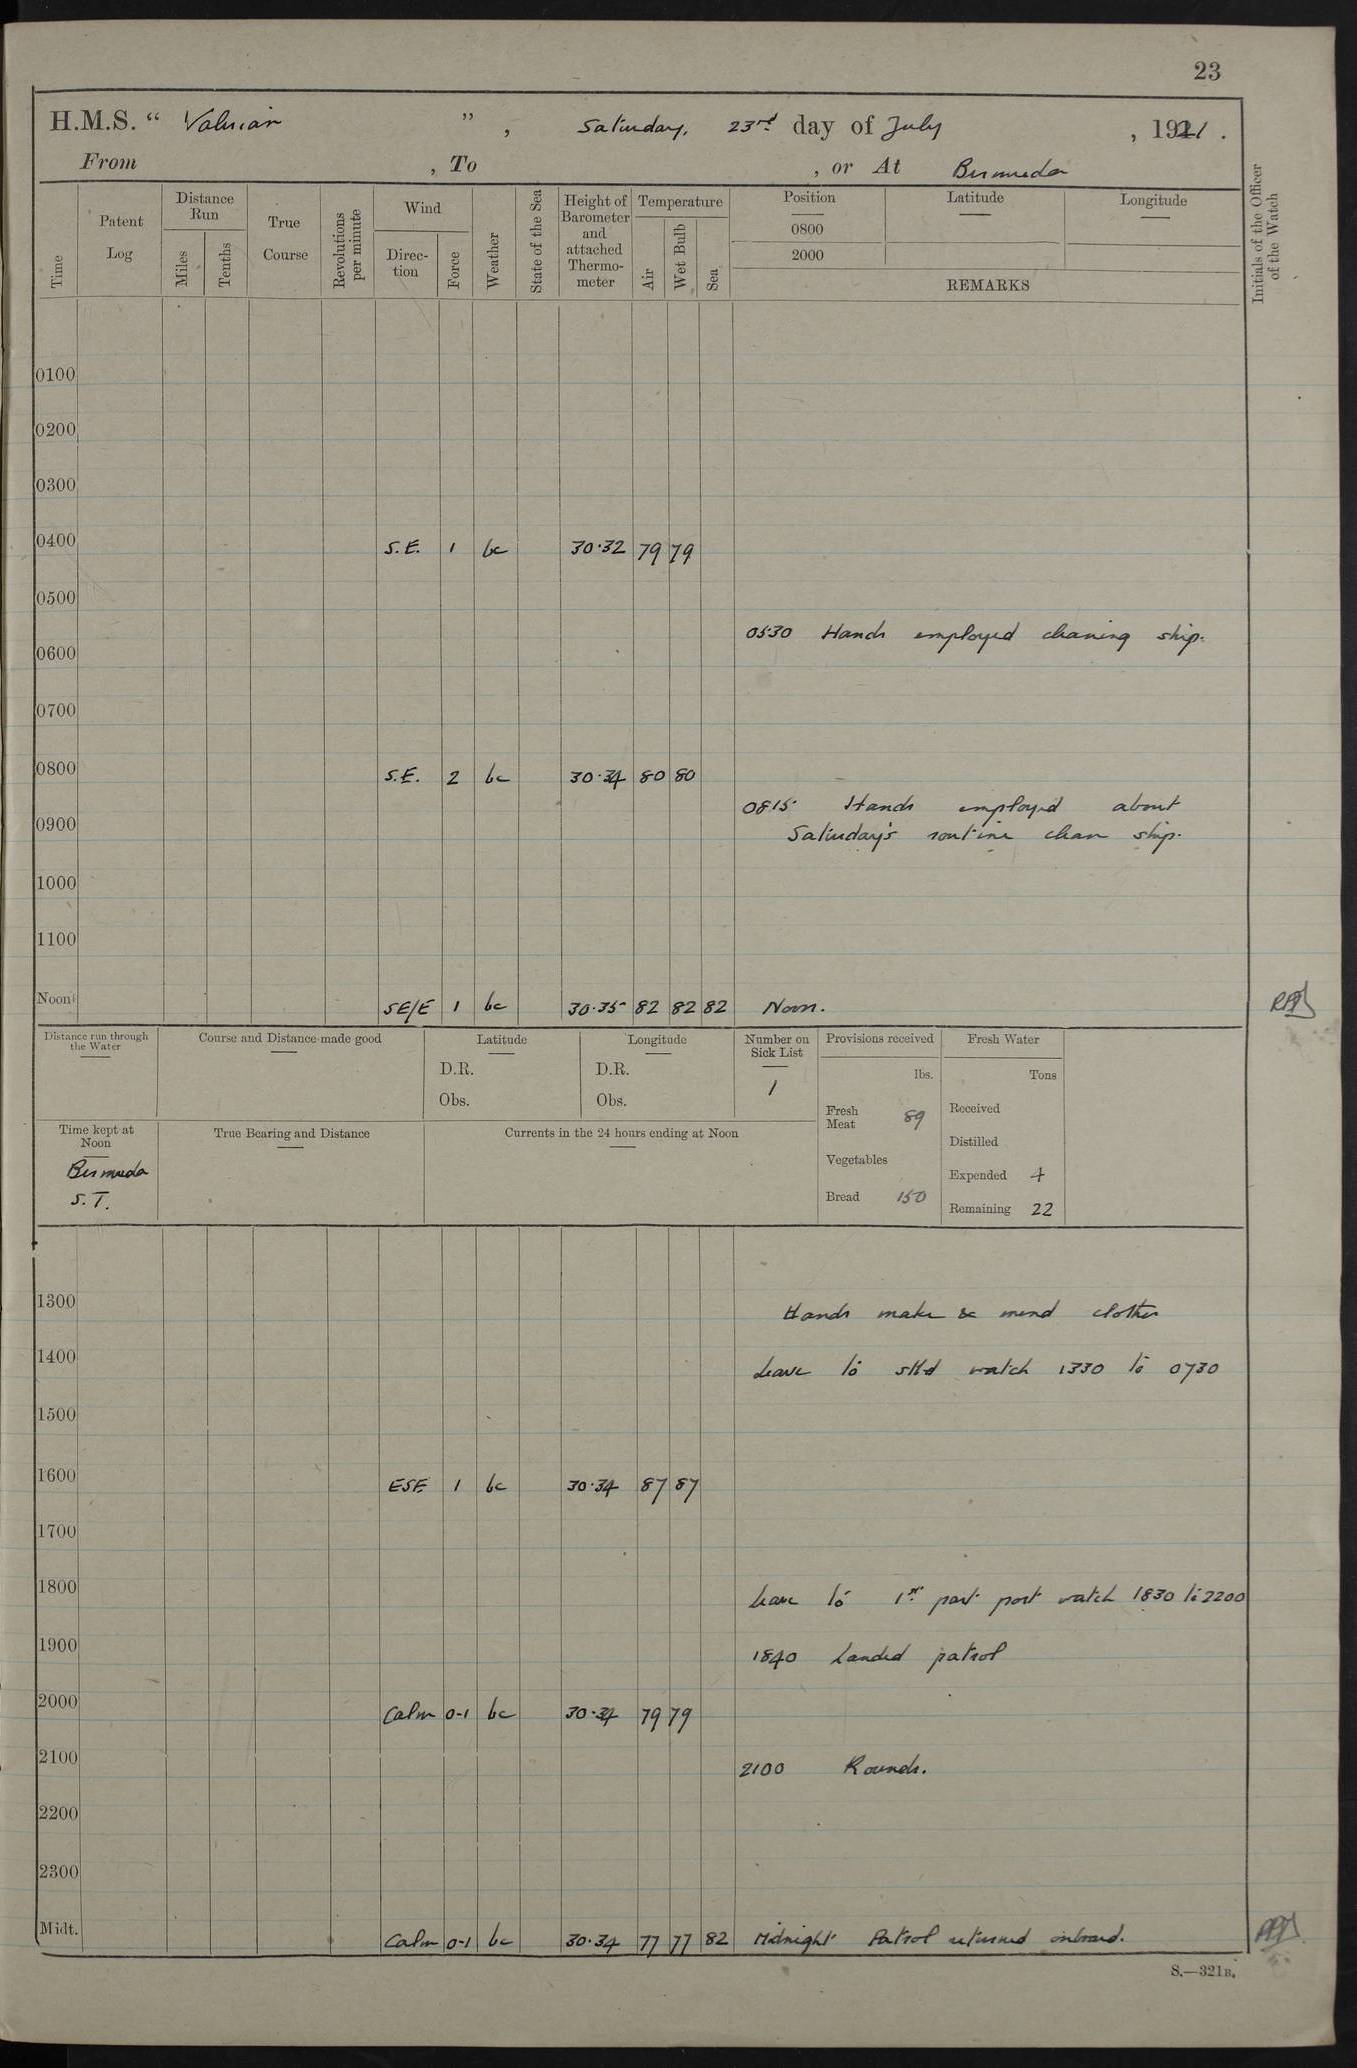 23
H.M.S. “ Valerian ” , Saturday, 23rd day of July , 1921 .
From , To , or At Bermuda
Time
Patent Log
Distance Run
Miles
Tenths
True Course
Revolutions per minute
Wind
Direc-tion
Force
Weather
State of the Sea
Height of Barometer and attached Thermo-meter
Temperature
Air
Wet Bulb
Sea
Position
0800
2000
Latitude
Longitude
REMARKS
Initials of the Officer of the Watch
0100
0200
0300
0400 S.E. 1 bc 30·32 79 79
0500
0530 Hands employed cleaning ship.
0600
0700
0800 S.E. 2 bc 30·34 80 80
0815 Hands employed about
0900 Saturday's routine clean ship.
1000
1100
Noon SE/E 1 bc 30·35 82 82 82 Noon.
Distance run through the Water
Course and Distance made good
Latitude
D.R.
Obs.
Longitude
D.R.
Obs.
Number on Sick List
1
Provisions received
lbs.
Fresh Meat 89
Vegetables
Bread 150
Fresh Water
Tons
Received
Distilled
Expended 4
Remaining 22
Time kept at Noon
Bermuda
S.T.
True Bearing and Distance
Currents in the 24 hours ending at Noon
1300 Hands make & mend clothes
1400 Leave to stbd watch 1330 to 0730
1500
1600 ESE 1 bc 30·34 87 87
1700
1800 Leave to 1st part port watch 1830 to 2200
1900 1840 Landed patrol
2000 Calm 0-1 bc 30·34 79 79
2100 2100 Rounds.
2200
2300
Midt. Calm 0-1 bc 30·34 77 77 82 Midnight Patrol returned onboard.
S.—321B.